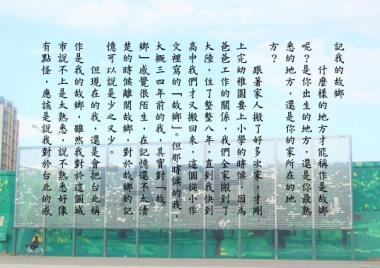 記我的故鄉
什麼樣的地方才能稱作是故鄉
呢？是你出生的地方，還是你最熟
悉的地方，還是你的家所在的地
方？
跟著家人搬了好多次家，才剛
上完幼稚園要上小學的時候，因為
爸爸工作的關係，我們全家搬到了
大陸，住了整整八年，直到我快到
高中我們才又搬回來，這個從小作
文裡寫的「故鄉」。但那時候的我，
大概三四年前的我，其實對「故
鄉」感覺很陌生，在記憶還不太清
楚的時候離開故鄉，對於故鄉的記
憶可以說是少之又少。
但現在的我，還是會把台北稱
作是我的故鄉，雖然我對於這個城
市說不上是太熟悉，說不熟悉好像
有點怪，應該是說我對於台北的感